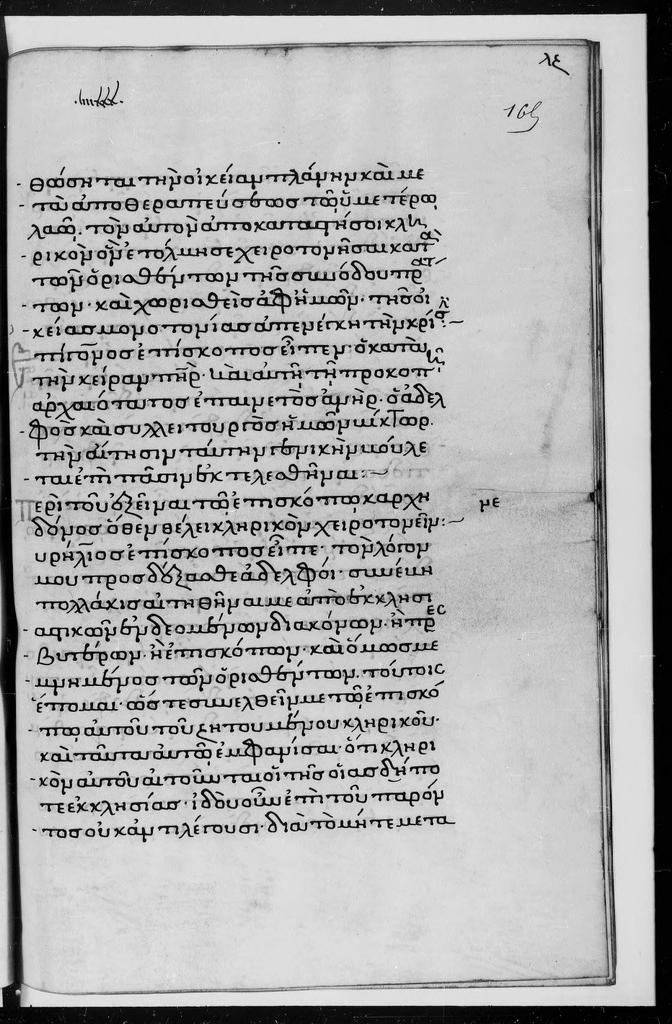 λε
165
θώσηται τὴν οἰκείαν πλάνην καὶ με
τὰ ἀποθεραπεύσεως τοῦ ὑμετέρου
λαοῦ. τὸν αὐτὸν ἀποκαταστῆσοι κλη
ρικὸν ὃν ἐτόλμησε χειροτονῆσαι κατὰ
τῶν ὁρισθέντων τῆς συνόδου πρ
των. καὶ χωρισθεὶς ἀφ' ἡμῶν. τῆς οἰ
κείας μονοτονίας ἀπενέγκη τὴν κρί
πίγονος ἐπίσκοπος εἶπεν. ὁ κατὰ
τὴν κείραν πηρ. καὶ αὐτῆ τῆ προκοπ
ἀρχαιότατος ἐπαινετὸς ἀνὴρ. ὁ ἀδελ
φὸς καὶ συλλειτουργὸς ἡμῶν νίκτωρ.
τὴν αἴτησιν ταύτην γενικὴν βούλε
ται ἐπὶ πᾶσιν ἐκτελεσθῆναι:
ερὶ τοῦ ἐξεῖναι τῶ ἐπισκόπω καρχη
με
δόνος ὅθεν θέλει κληρικὸν χειροτονεῖν:
υρήλιος ἐπίσκοπος εἶπε. τὸν λόγον
μου προσδέξασθε ἀδελφοί. συνέβη
πολλάκις αἰτηθῆναι με ἀπὸ ἐκκλησι
αστικῶν ἐνδεομένων διακόνων. ἢ πρες
βυτέρων. ἢ ἐπισκόπων. καὶ ὅμως με
μνημένος τῶν ὁρισθέντων. τούτοις
ἕπομαι. ὥστε συνελθεῖν με τῶ ἐπισκό
πω αὐτοῦ τοῦ ζητουμένου κληρικοῦ.
καὶ ταῦτα αὐτῶ ἐμφανίσαι. ὅτι κληρι
κὸν αὐτοῦ αἰτοῦνται οἱ τῆς οἵας δήπο
τε ἐκκλησίας. ἰδοὺ οὖν ἐπὶ τοῦ παρόν
τος οὐκ ἀντιλέγουσι. διὰ τὸ μή τε μετα